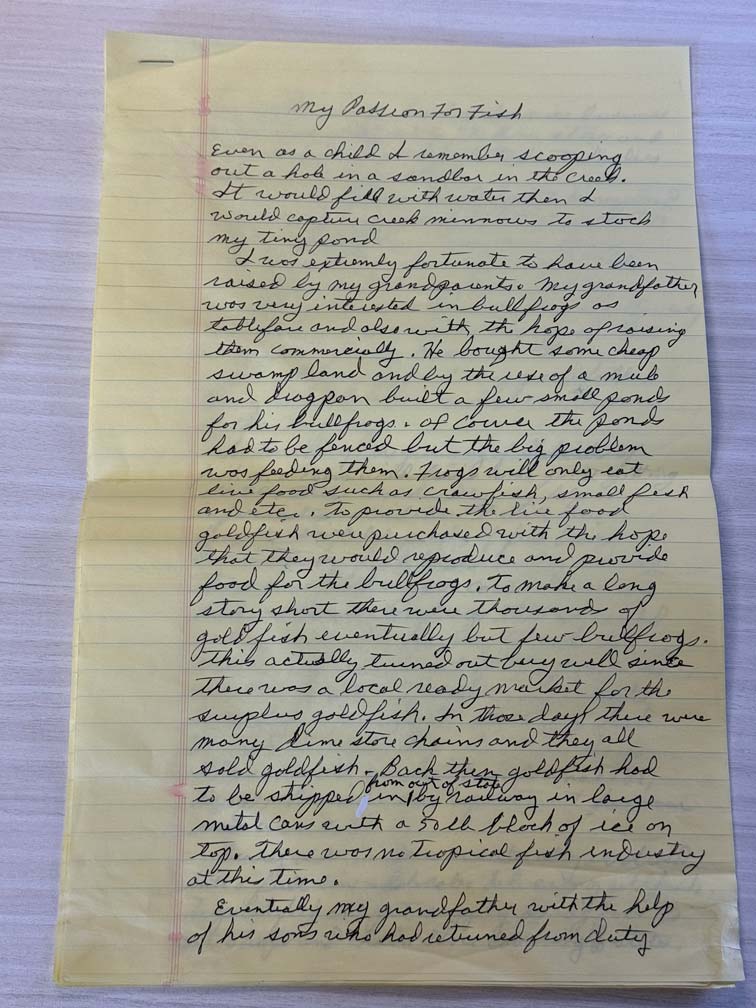 My Passion For Fish
Even as a child I remember scooping
out a hole in a sandbar in the creek.
It would fill with water then I
would capture creek minnows to stock
my tiny pond
I was extremly fortunate to have been
raised by my grandparents. My grandfather
was very interested in bullfrogs as
tablefare and also with the hope of raising
them commercially. He bought some cheap
swamp land and by the use of a mule
and dragpan built a few small ponds
for his bullfrogs. Of course the ponds
had to be fenced but the big problem
was feeding them. Frogs will only eat
live food such as crawfish, small fish
and etc. To provide the live food
goldfish were purchased with the hope
that they would reproduce and provide
food for the bullfrogs. To make a long
story short there were thousands of
gold fish eventually but few bullfrogs.
This actually turned out very well since
there was a local ready market for the
surplus goldfish. In those days there were
many dime store chains and they all
sold goldfish. Back then goldfish had
from out of state
to be shipped in by railway in large
metal cans with a 50 lb block of ice on
top. There was no tropical fish industry
at this time.
Eventually my grandfather with the help
of his sons who had returned from duty